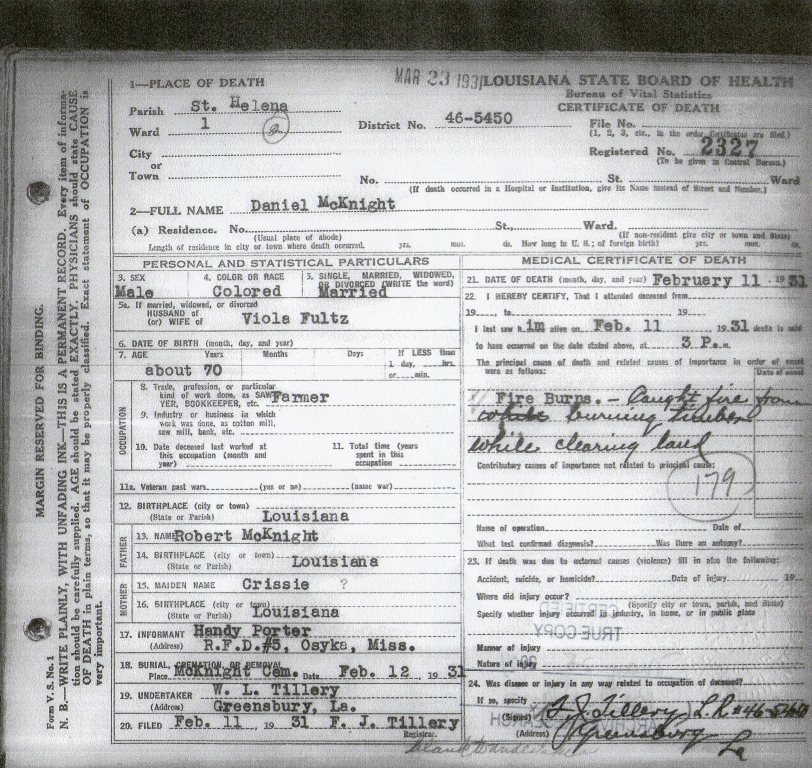 MAR 23 1931 LOUISIANA STATE BOARD OF HEALTH
Bureau of Vital Statistics
CERTIFICATE OF DEATH
1—PLACE OF DEATH
Parish St. Helena
Ward 1 2
District No. 46-5450
File No.
(1, 2, 3, etc., in the order Certificates are filed.)
Registered No. 2327
(To be given in Central Bureau.)
City
or
Town
No. St. Ward
(If death occurred in a Hospital or Institution, give its Name instead of Street and Number.)
2—FULL NAME Daniel McKnight
(a) Residence. No. St., Ward.
(Usual place of abode) (If non-resident give city or town and State)
Length of residence in city or town where death occurred, yrs. mos. ds. How long in U. S.; of foreign birth? yrs. mos. ds.
PERSONAL AND STATISTICAL PARTICULARS
3. SEX
Male
4. COLOR OR RACE
Colored
5. SINGLE, MARRIED, WIDOWED,
OR DIVORCED (WRITE the word)
Married
5a. If married, widowed, or divorced
HUSBAND OF
(or) WIFE OF Viola Fultz
6. DATE OF BIRTH (month, day, and year)
7. AGE Years Months Days If LESS than
1 day, hrs.
or min.
about 70
OCCUPATION
8. Trade, profession, or particular
kind of work done, as SAWYER, BOOKKEEPER, etc. Farmer
9. Industry or business in which
work was done, as cotton mill,
saw mill, bank, etc.
10. Date deceased last worked at
this occupation (month and
year)
11. Total time (years
spent in this
occupation
11a. Veteran past wars. (yes or no) (name war)
12. BIRTHPLACE (city or town)
(State or Parish) Louisiana
FATHER
13. NAME Robert McKnight
14. BIRTHPLACE (city or town)
(State or Parish) Louisiana
MOTHER
15. MAIDEN NAME Crissie ?
16. BIRTHPLACE (city or town)
(State or Parish) Louisiana
17. INFORMANT Handy Porter
(Address) R.F.D.#5, Osyka, Miss.
18. BURIAL, CREMATION, OR REMOVAL
Place McKnight Cem. Date Feb. 12, 1931
19. UNDERTAKER W. L. Tillery
(Address) Greensbury, La.
20. FILED Feb. 11 1931 F. J. Tillery
Registrar.
MEDICAL CERTIFICATE OF DEATH
21. DATE OF DEATH (month, day, and year) February 11 1931
22. I HEREBY CERTIFY, That I attended deceased from
19 , to 19
I last saw h im alive on Feb. 11 , 1931 death is said
to have occurred on the date stated above, at 3 P. m.
The principal cause of death and related causes of importance in order of onset
were as follows: Date of onset
Fire Burns. – Caught fire from
burning timber
while clearing land
Contributory causes of importance not related to principal cause:
179
Name of operation Date of
What test confirmed diagnosis? Was there an autopsy?
23. If death was due to external causes (violence) fill in also the following:
Accident, suicide, or homicide? Date of injury 19
Where did injury occur?
(Specify city or town, parish, and State)
Specify whether injury occurred in industry, in home, or in public place
CERTIFIED
TRUE COPY
Manner of injury
Nature of injury
24. Was disease or injury in any way related to occupation of deceased?
If so, specify
(Signed) F. J. Tillery L. R. #46-5450
(Address) Greensburg
La
MARGIN RESERVED FOR BINDING.
N. B.—WRITE PLAINLY, WITH UNFADING INK—THIS IS A PERMANENT RECORD. Every item of information should be carefully supplied. AGE should be stated EXACTLY. PHYSICIANS should state CAUSE OF DEATH in plain terms, so that it may be properly classified. Exact statement of OCCUPATION is very important.
Form V. S. No. 1